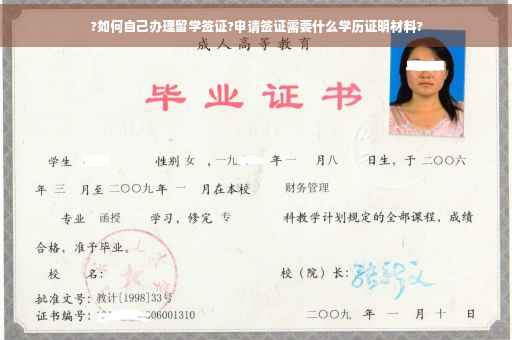 ?如何自己办理留学签证?申请签证需要什么学历证明材料?
成人高等教育
毕业证书
学生 性别 女 ，一九 年 一 月八 日生，于 二〇〇六
年 三 月至 二〇〇九 年 一 月在本校 财务管理
专业 函授 学习，修完 专 科教学计划规定的全部课程，成绩
合格，准予毕业。
校 名： 校（院）长：
批准文号：教计[1998]33号
证书编号： 06001310 二〇〇九 年 一 月 十 日